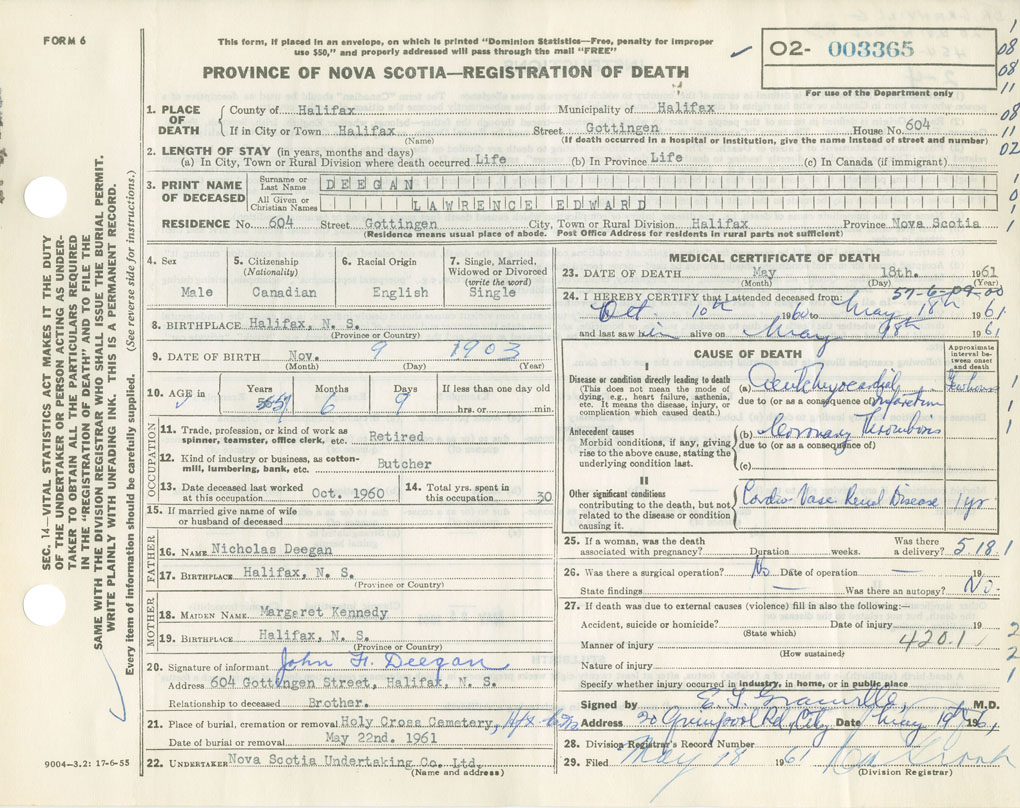 FORM 6
This form, if placed in an envelope, on which is printed "Dominion Statistics—Free, penalty for improper
use $50," and properly addressed will pass through the mail "FREE"
PROVINCE OF NOVA SCOTIA—REGISTRATION OF DEATH
O2- 003365
For use of the Department only
08
08
11
08
11
02
SEC. 14—VITAL STATISTICS ACT MAKES IT THE DUTY
OF THE UNDERTAKER OR PERSON ACTING AS UNDER-
TAKER TO OBTAIN ALL THE PARTICULARS REQUIRED
IN THE "REGISTRATION OF DEATH" AND TO FILE THE
SAME WITH THE DIVISION REGISTRAR WHO SHALL ISSUE THE BURIAL PERMIT.
WRITE PLAINLY WITH UNFADING INK. THIS IS A PERMANENT RECORD.
Every item of information should be carefully supplied. (See reverse side for instructions.)
1. PLACE OF DEATH
County of Halifax Municipality of Halifax
If in City or Town Halifax Street Gottingen House No. 604
(Name) (If death occurred in a hospital or institution, give the name instead of street and number)
2. LENGTH OF STAY (in years, months and days)
(a) In City, Town or Rural Division where death occurred Life (b) In Province Life (c) In Canada (if immigrant)
3. PRINT NAME OF DECEASED
Surname or Last Name DEEGAN
All Given or Christian Names LAWRENCE EDWARD
RESIDENCE No. 604 Street Gottingen City, Town or Rural Division Halifax Province Nova Scotia
(Residence means usual place of abode. Post Office Address for residents in rural parts not sufficient)
4. Sex
Male
5. Citizenship
(Nationality)
Canadian
6. Racial Origin
English
7. Single, Married,
Widowed or Divorced
(write the word)
Single
8. BIRTHPLACE Halifax, N. S.
(Province or Country)
9. DATE OF BIRTH Nov. 9 1903
(Month) (Day) (Year)
10. AGE in
Years Months Days If less than one day old
57 6 9 hrs. or min.
OCCUPATION
11. Trade, profession, or kind of work as
spinner, teamster, office clerk, etc. Retired
12. Kind of industry or business, as cotton-
mill, lumbering, bank, etc. Butcher
13. Date deceased last worked
at this occupation Oct. 1960
14. Total yrs. spent in
this occupation 30
15. If married give name of wife
or husband of deceased
FATHER
16. NAME Nicholas Deegan
17. BIRTHPLACE Halifax, N. S.
(Province or Country)
MOTHER
18. MAIDEN NAME Margaret Kennedy
19. BIRTHPLACE Halifax, N. S.
(Province or Country)
20. Signature of informant John F. Deegan
Address 604 Gottingen Street, Halifax, N. S.
Relationship to deceased Brother.
21. Place of burial, cremation or removal Holy Cross Cemetery, Hfx
Date of burial or removal May 22nd. 1961
22. UNDERTAKER Nova Scotia Undertaking Co. Ltd.
(Name and address)
9004—3.2: 17-6-55
MEDICAL CERTIFICATE OF DEATH
23. DATE OF DEATH May 18th. 1961
(Month) (Day) (Year)
57-6-09-00
24. I HEREBY CERTIFY that I attended deceased from:
Oct. 10th 1960 to May 18th 1961
and last saw him alive on May 18th 1961
CAUSE OF DEATH
Approximate
interval be-
tween onset
and death
I
Disease or condition directly leading to death
(This does not mean the mode of
dying, e.g., heart failure, asthenia,
etc. It means the disease, injury, or
complication which caused death.)
(a) Acute Myocardial
due to (or as a consequence of) Infarction
Antecedent causes
Morbid conditions, if any, giving
rise to the above cause, stating the
underlying condition last.
(b) Coronary Thrombosis
due to (or as a consequence of)
(c)
II
Other significant conditions
contributing to the death, but not
related to the disease or condition
causing it.
Cardio Vasc Renal Disease 1 yr
25. If a woman, was the death
associated with pregnancy? Duration weeks. Was there
a delivery? 5181
26. Was there a surgical operation? No Date of operation — 19
State findings — Was there an autopsy? No.
27. If death was due to external causes (violence) fill in also the following:—
Accident, suicide or homicide? Date of injury 19
(State which)
Manner of injury 420.1
(How sustained)
Nature of injury
Specify whether injury occurred in industry, in home, or in public place
Signed by M.D.
Address City Date May 19th 1961
28. Division Registrar's Record Number
29. Filed May 18 1961
(Division Registrar)